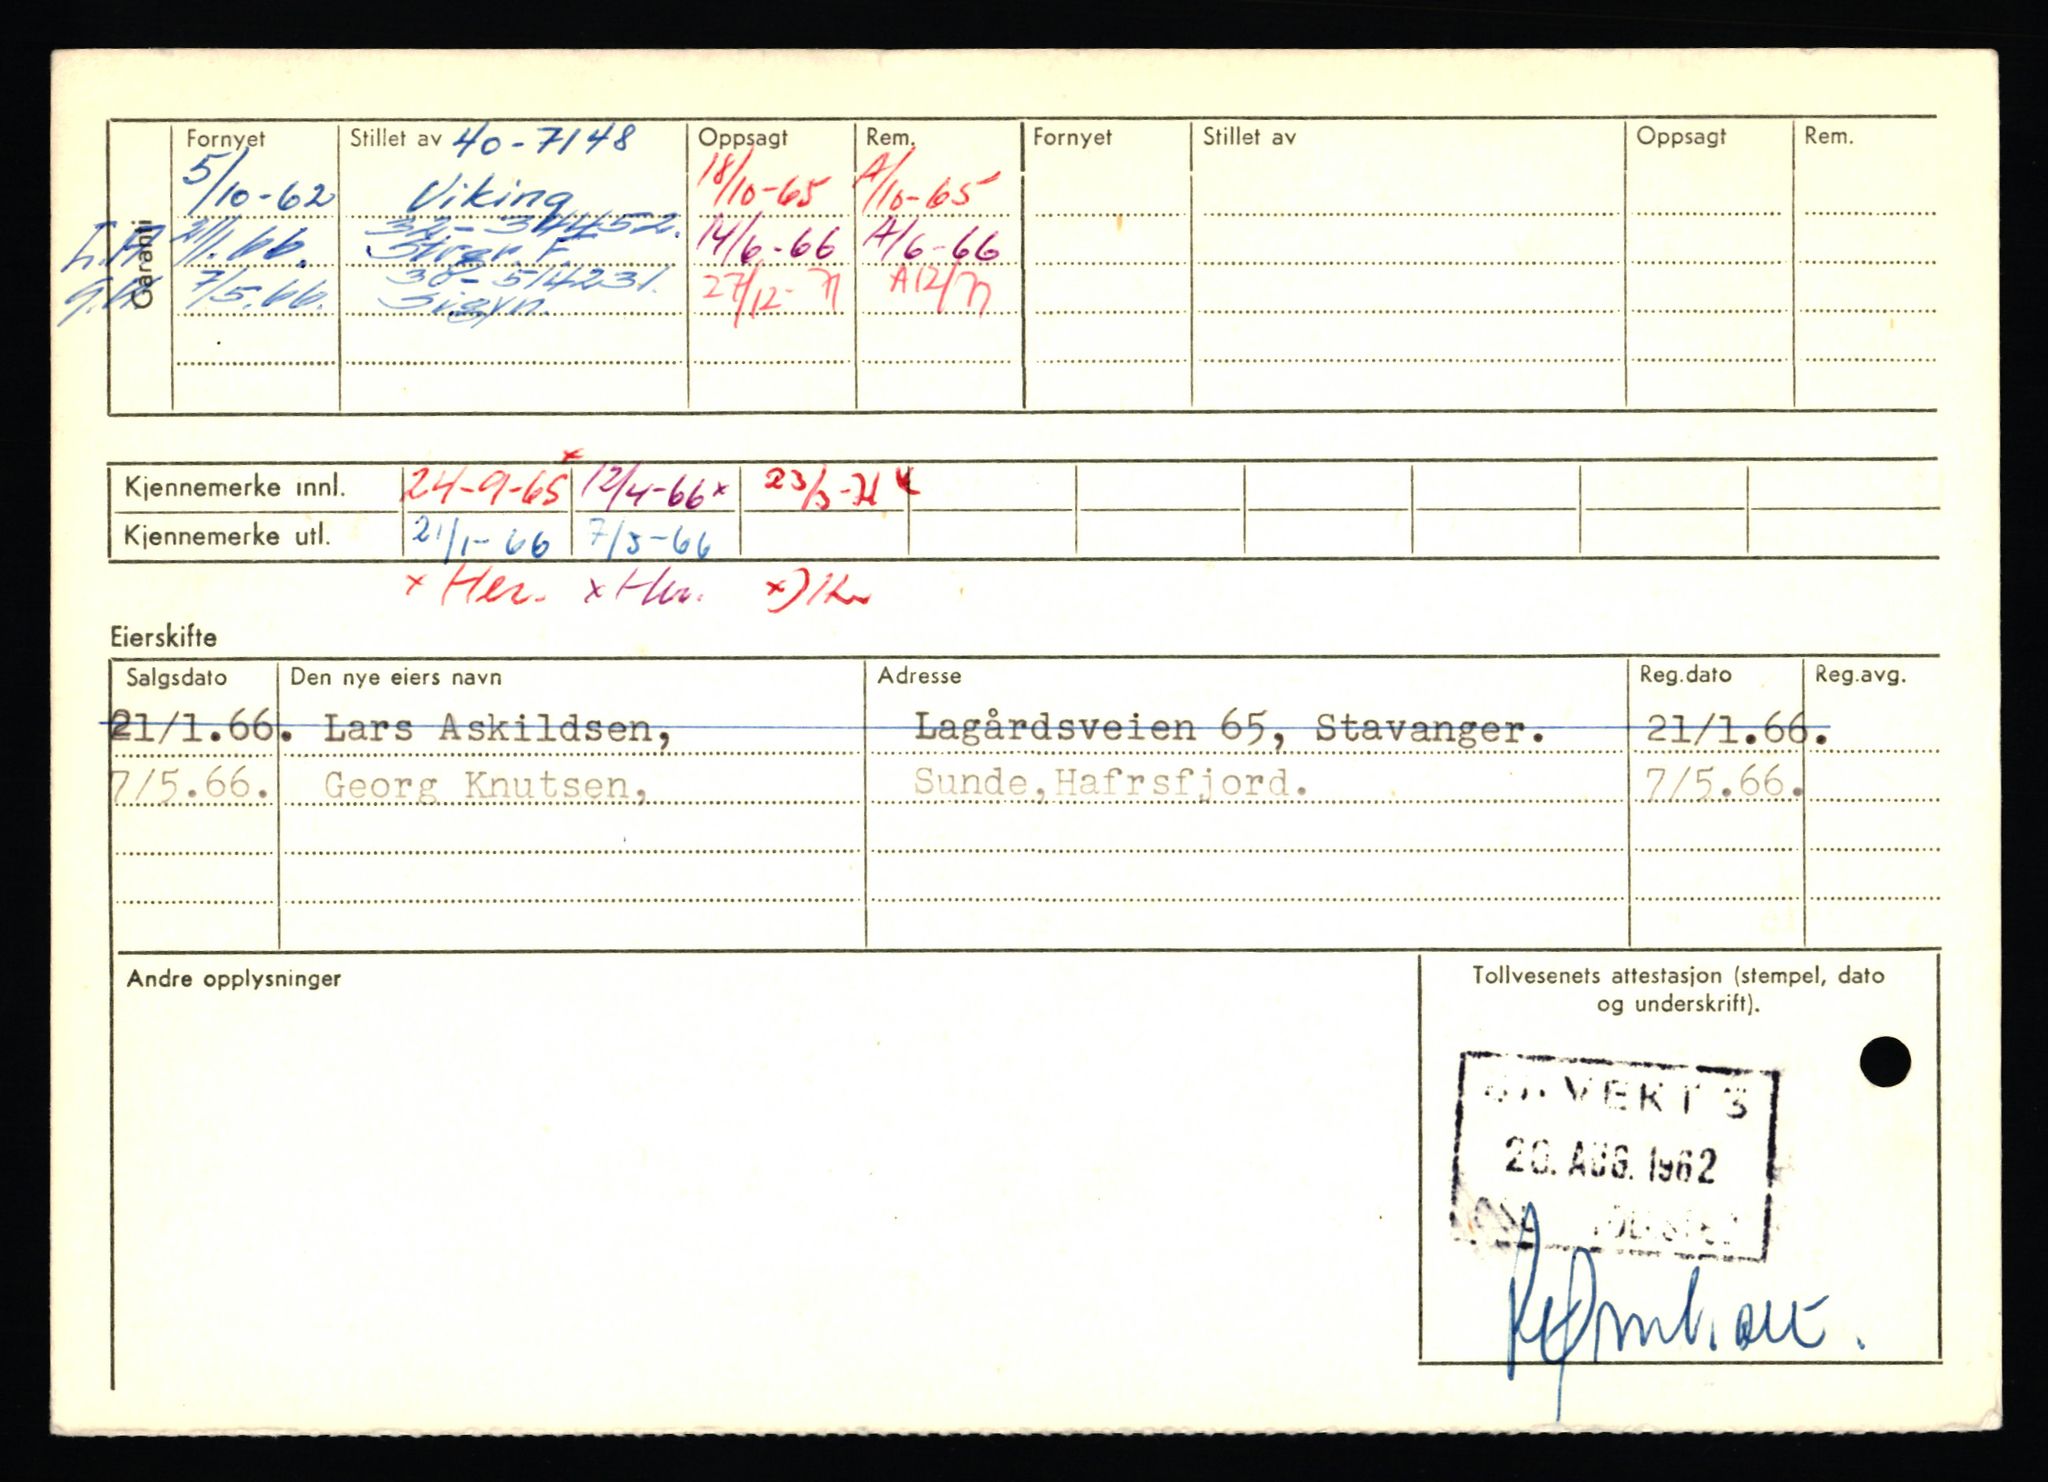 Garanti
Fornyet Stillet av 40-7148 Oppsagt Rem. Fornyet Stillet av Oppsagt Rem.
5/10-62 Viking 18/10-65 A/10-65
21/1.66. 32-34452. 14/6-66 A/6-66
7/5.66. 38-514231. 27/12-71 A12/71
Sigyn.
Kjennemerke innl. 24-9-65 x 12/4-66 x 23/3-71 x
Kjennemerke utl. 21/1-66 7/5-66
x Her. x Her. x
Eierskifte
Salgsdato Den nye eiers navn Adresse Reg.dato Reg.avg.
21/1.66. Lars Askildsen, Lagårdsveien 65, Stavanger. 21/1.66.
7/5.66. Georg Knutsen, Sunde,Hafrsfjord. 7/5.66.
Andre opplysninger
Tollvesenets attestasjon (stempel, dato
og underskrift).
20. AUG. 1962